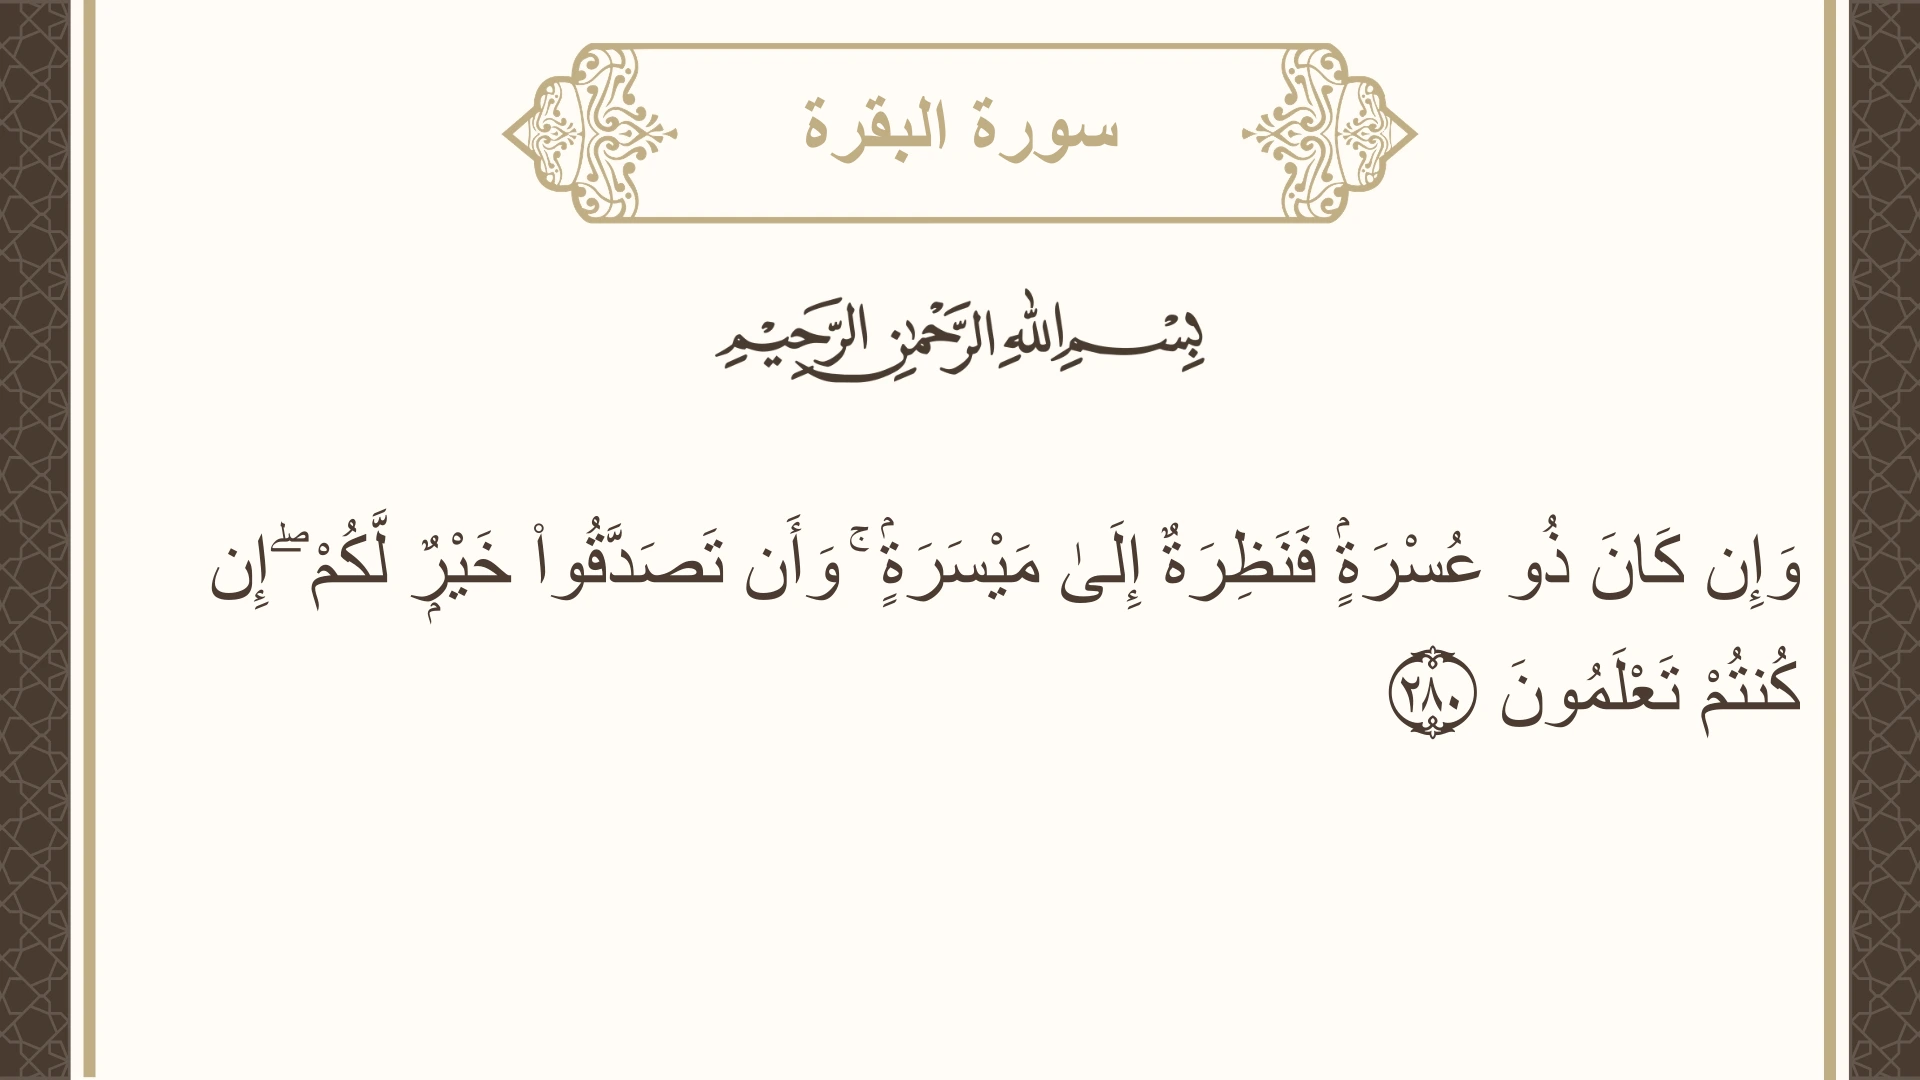 سورة البقرة
بِسْمِ اللهِ الرَّحْمٰنِ الرَّحِيْمِ
وَإِن كَانَ ذُو عُسْرَةٍۢ فَنَظِرَةٌ إِلَىٰ مَيْسَرَةٍۢ ۚ وَأَن تَصَدَّقُوا۟ خَيْرٌۭ لَّكُمْ ۖ إِن
كُنتُمْ تَعْلَمُونَ ٢٨٠